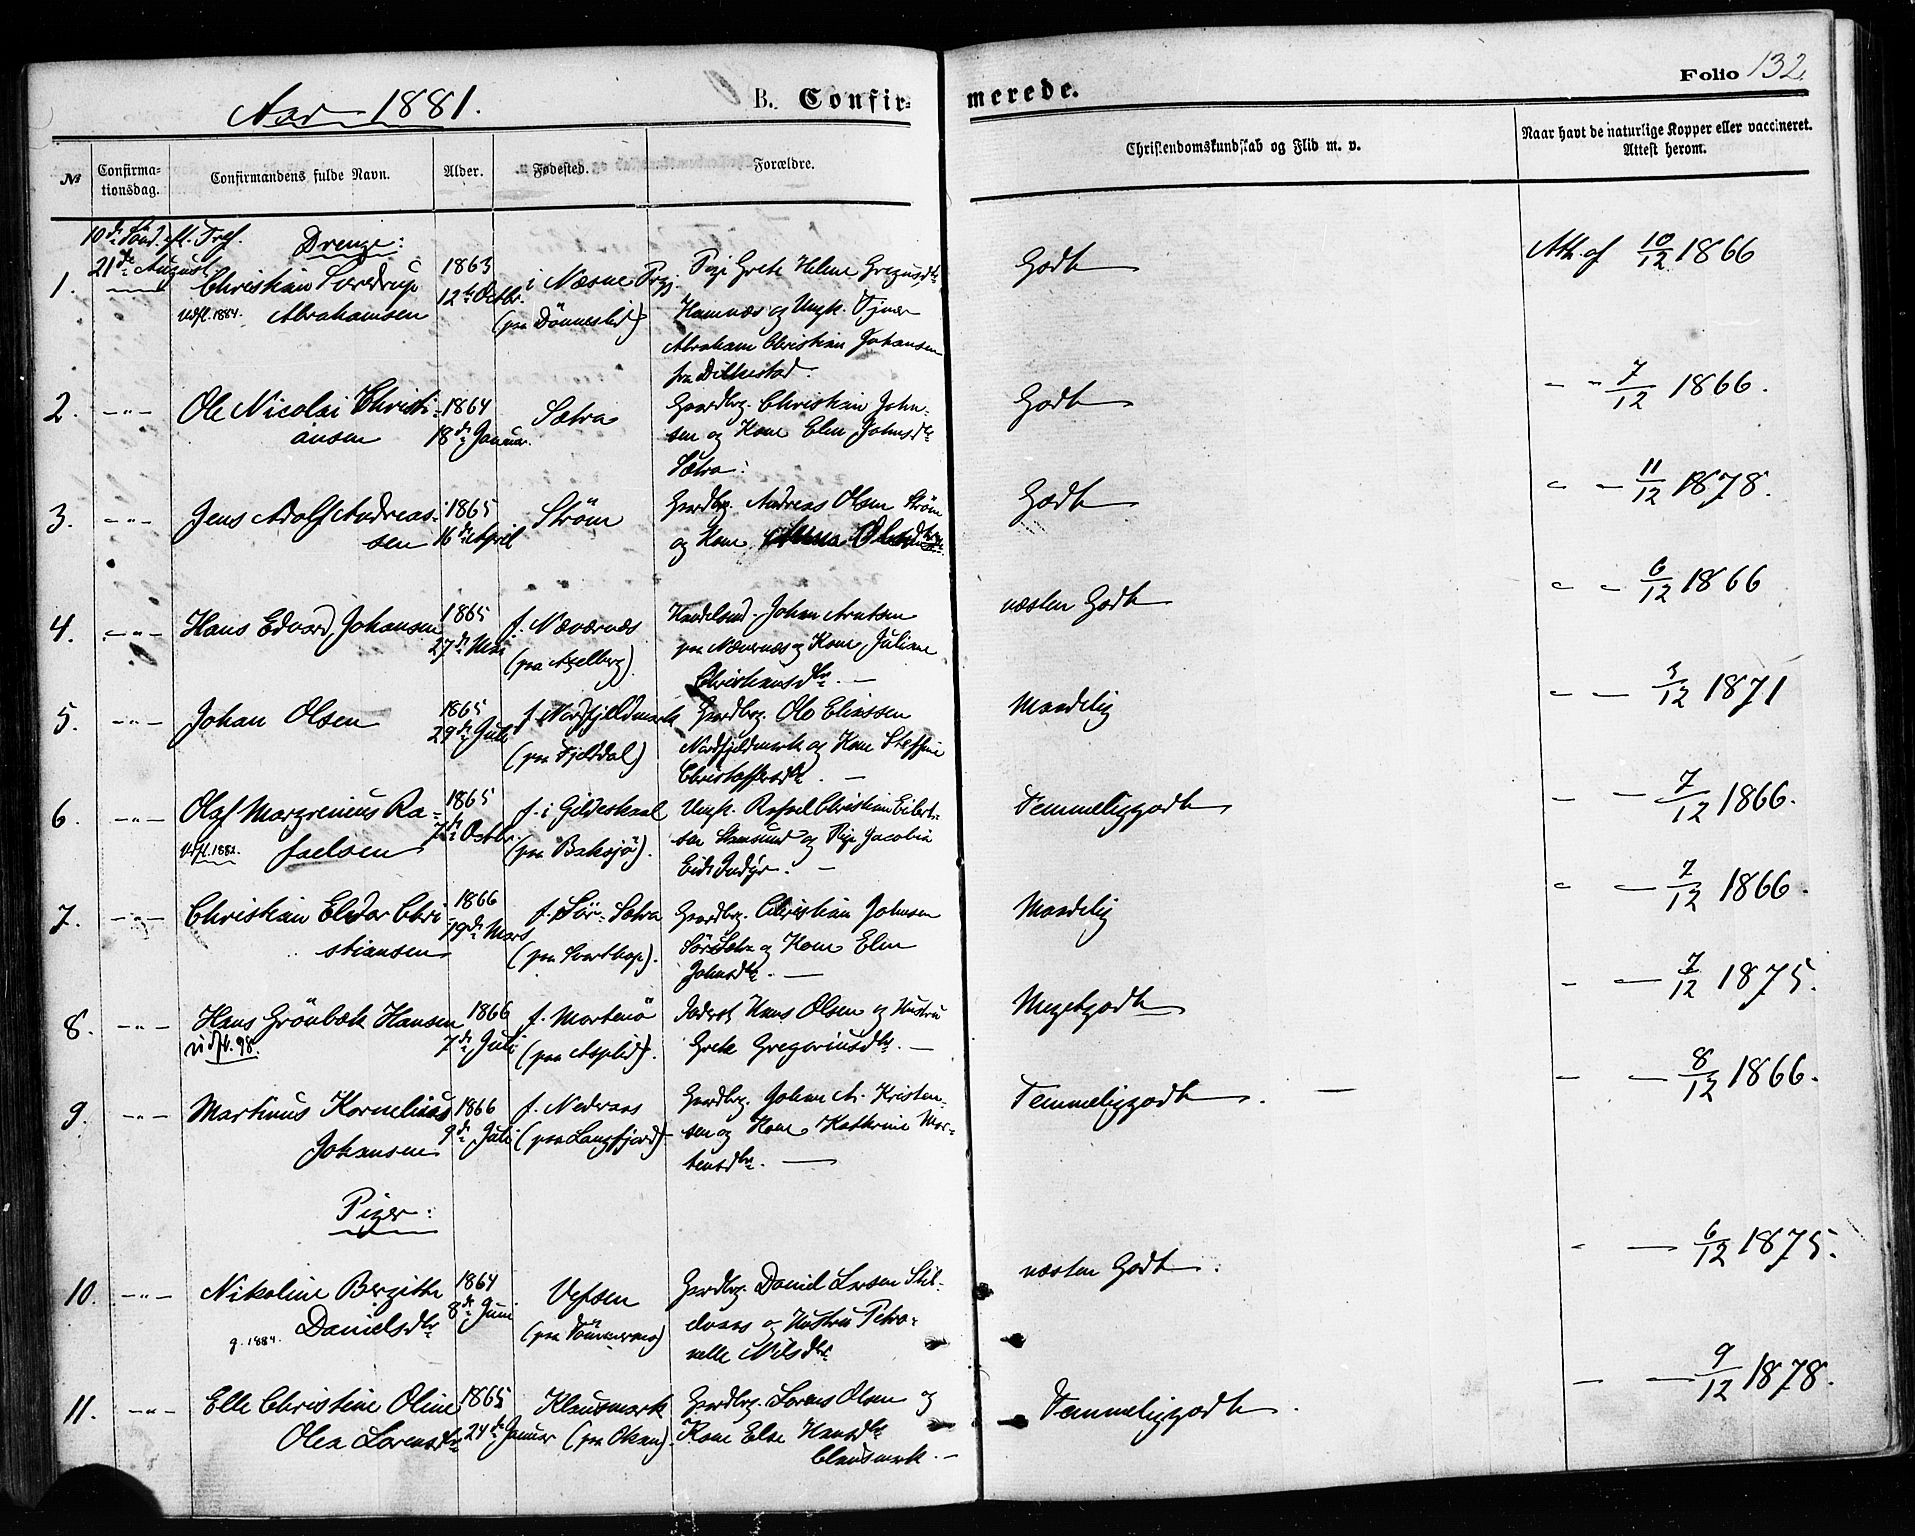 Aar 1881.
B. Confir-
merede.
Folio 132.
№
Confirma-
tionsdag.
Confirmandens fulde Navn.
Alder.
Fødested.
Forældre.
Christendomskundskab og Flid m. v.
Naar havt de naturlige Kopper eller vaccineret.
Attest herom.
10de Sönd. eft. Tref.
21de August
Drenge:
1.
Christian Sverdrup
Udfl. 1884. Abrahamsen
1863
12te Octbr.
i Næsne Prgj.
(paa Dönneslid)
Pige Grete Helene Gregusdtr
Hamnæs og Ungk. Tjener
Abraham Christian Johansen
fra Dilkestad.
Godt
Att. af 10/12 1866
2. -"-
Ole Nicolai Christi-
ansen
1864
18de Januar.
Sætra
Gaardbrg. Christian John-
sen og Kone Elen Johnsdtr
Sætra:
Godt
- " 7/12 1866.
3. -"-
Jens Adolf Andreas-
sen
1865
16de April
Ström
Gaardbrg. Andreas Olsen Ström
og Kone
Godt
" - 11/12 1878.
4. -"-
Hans Edvard Johansen
1865
27de Mai
f. Næværnæs
(paa Axelberg).
Handelsmd. Johan Arntsen
paa Næværnæs og Kone Juliane
Christiansdtr. -
næsten Godt
" - 6/12 1866
5. -"-
Johan Olsen
1865
29de Juli
f. Nordfjeldmark
(paa Fjelddal)
Gaardbrg. Ole Eliassen
Nordfjeldmark og Kone Steffine
Christoffersdtr. -
Maadelig
- - 3/12 1871
6. -"-
Olaf Margrenius Ra-
Udfl. 1882. faelsen
1865
7de Octbr.
f. i Gildeskaal
(paa Baksjö).
Ungk. Rafael Christian Eilert-
sen Stamsund og Pige Jacobia
Eide Indyr. -
Temmeliggodt
- - 7/12 1866.
7. -"-
Christian Eledar Chri-
stiansen
1866
19de Mars
f. Sör-Sætra
(paa Svarthop).
Gaardbrg. Christian Johnsen
SörSætra og Kone Elen
Johnsdtr. -
Maadelig
" - 7/12 1866.
8. -"-
Hans Grönbæk Hansen
udfl. 98.
1866
7de Juli
f. Martenö
(paa Asplid).
Inderst Hans Olsen og Hustru
Grete Gregoriusdtr. -
Megetgodt
- - 7/12 1875.
9. -"-
Martinus Kornelius
Johansen
1866
9de Juli
f. Nedraas
(paa Langfjord)
Gaardbrg. Johan A. Kristen-
sen og Kone Kathrine Mor-
tensdtr. -
Temmeliggodt. -
- - 8/12 1866.
Piger:
10. -"-
Nikoline Bergitte
g. 1884. Danielsdtr
1864
8de Juni
Vefsen
(paa Tömmermo)
Gaardbrg. Daniel Larsen Stil-
elvaas og Hustru Petro-
nelle Nilsdtr
næsten Godt.
- - 6/12 1875.
11. -"-
Elle Christine Oline
Olea Lorensdtr
1865
24de Januar
Klausmark
(paa Okan).
Gaardbrg. Lorens Olsen og
Kone Else Hansdtr
Clausmark. -
Temmeliggodt.
- - 9/12 1878.